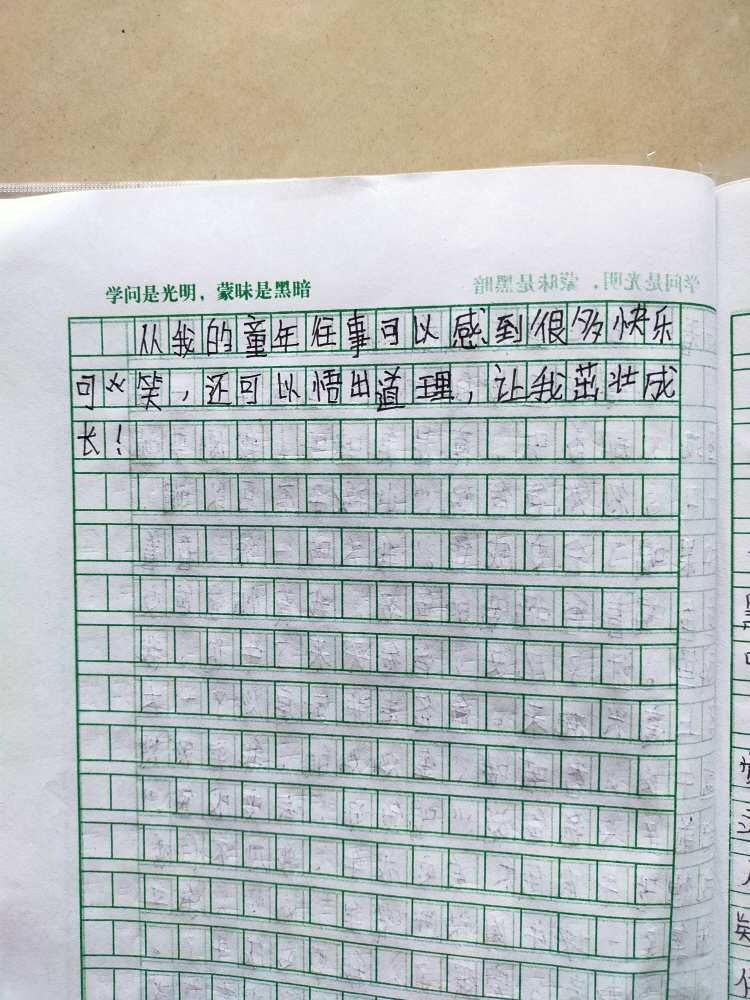 学问是光明，蒙昧是黑暗
从我的童年往事可以感到很多快乐
可以笑，还可以悟出道理，让我茁壮成
长！